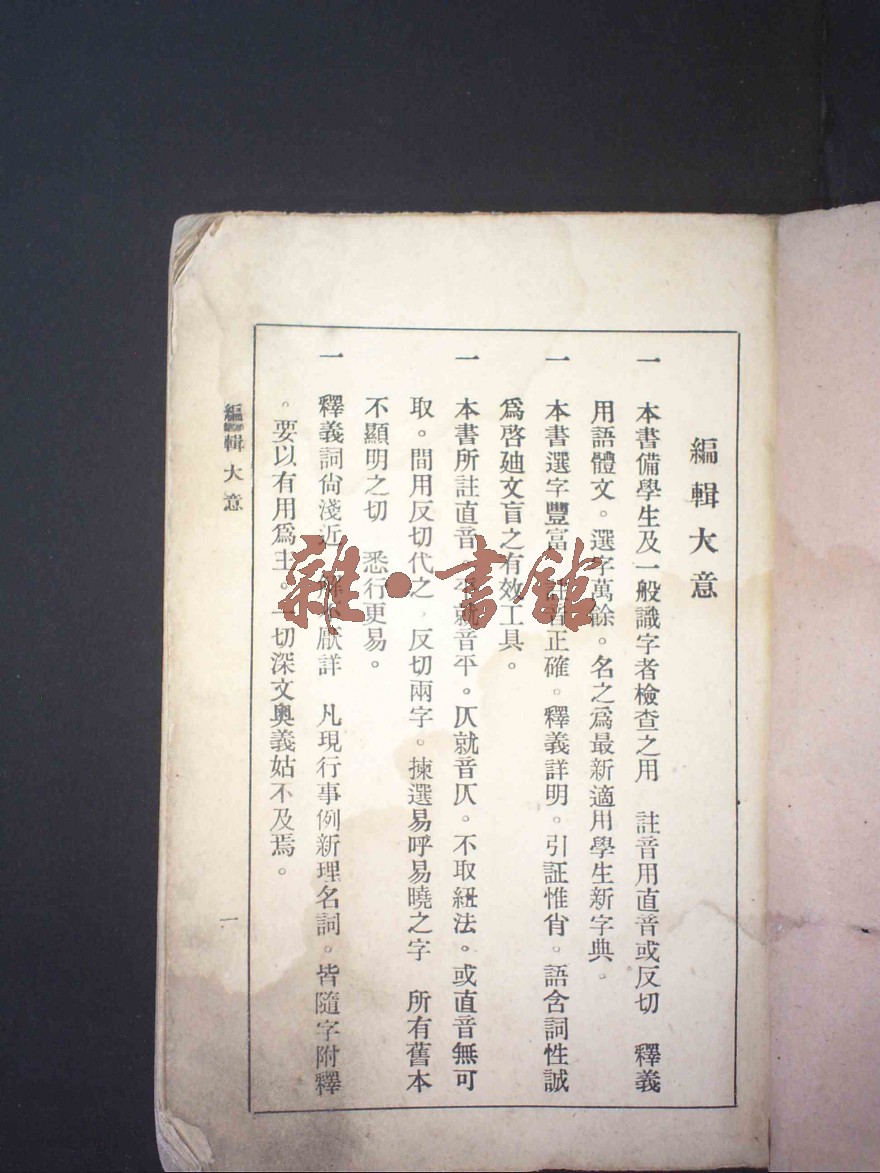 編輯大意
一 本書備學生及一般識字者檢查之用 註音用直音或反切 釋義
用語體文。選字萬餘。名之爲最新適用學生新字典。
一 本書選字豐富 註音正確。釋義詳明。引証惟肖。語含詞性誠
爲啓廸文盲之有效工具。
一 本書所註直音 平就音平。仄就音仄。不取紐法。或直音無可
取。間用反切代之 反切兩字。揀選易呼易曉之字 所有舊本
不顯明之切 悉行更易。
一 釋義詞尙淺近 解不厭詳 凡現行事例新理名詞。皆隨字附釋
。要以有用爲主。一切深文奧義姑不及焉。
編輯大意
一
雜·書館